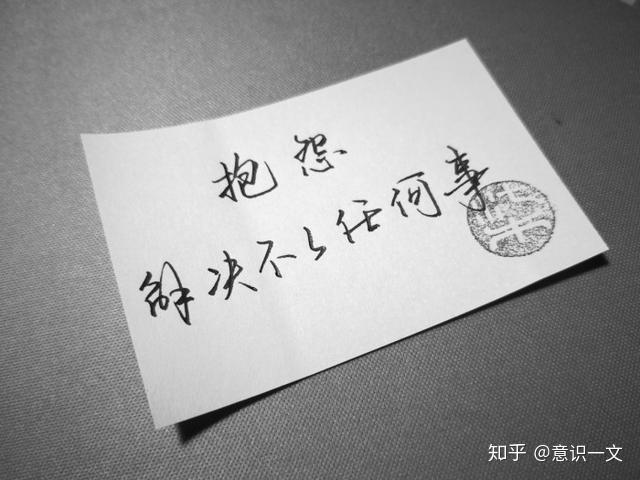 抱怨
解决不了任何事
知乎 @意识一文